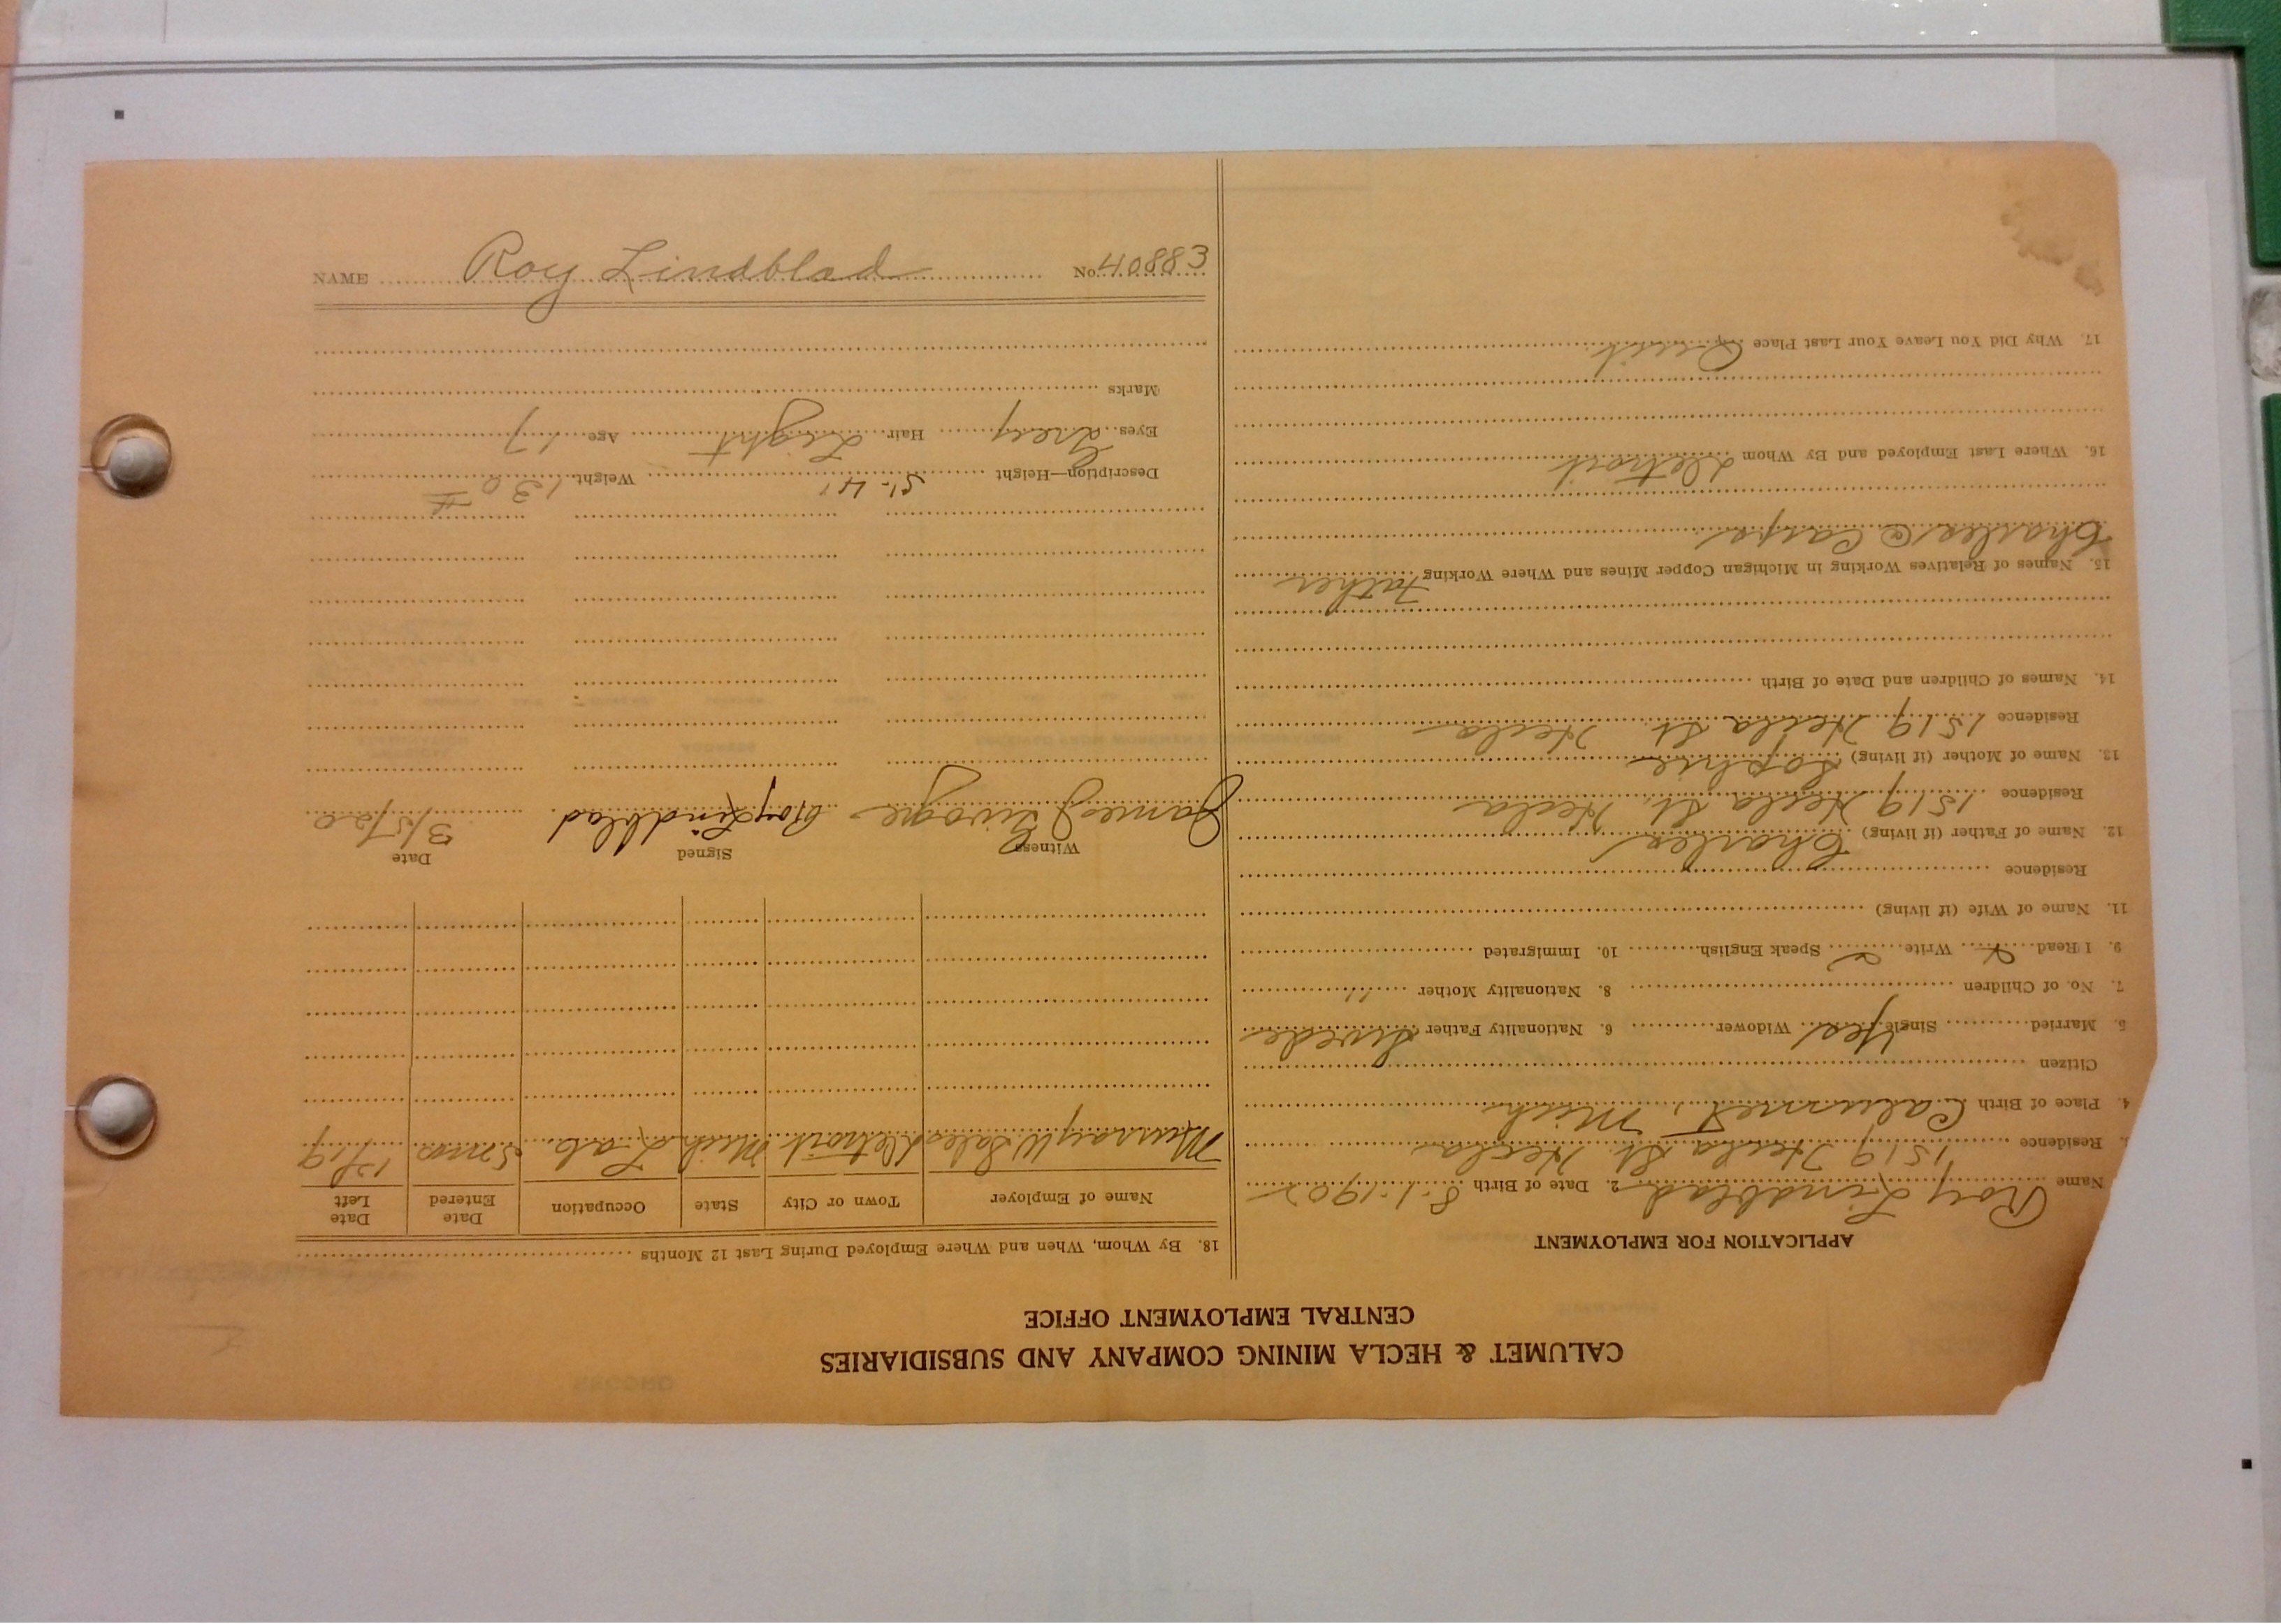 CALUMET & HECLA MINING COMPANY AND SUBSIDIARIES
CENTRAL EMPLOYMENT OFFICE
APPLICATION FOR EMPLOYMENT
Name Roy Lindblad 2. Date of Birth 8-1-1902
3. Residence 1519 Hecla St. Hecla
4. Place of Birth Calumet, Mich
Citizen
5. Married Single Yes Widower 6. Nationality Father Swede
7. No. of Children 8. Nationality Mother "
9. I Read Write Speak English 10. Immigrated
11. Name of Wife (if living)
Residence
12. Name of Father (if living) Charles
Residence 1519 Hecla St. Hecla
13. Name of Mother (if living) Sophie
Residence 1519 Hecla St. Hecla
14. Names of Children and Date of Birth
15. Names of Relatives Working in Michigan Copper Mines and Where Working Father
Charles @
16. Where Last Employed and By Whom Detroit
17. Why Did You Leave Your Last Place Quit
18. By Whom, When and Where Employed During Last 12 Months
Name of Employer Town or City State Occupation Date Entered Date Left
Murray W Sales Detroit Mich Lab. 5 mos 12/19
Witness Signed Date
James Roy Lindblad. 3/5/20
Description—Height 5'-4" Weight 130 #
Eyes Grey Hair Light Age 17
Marks
NAME Roy Lindblad No. 40883
RECORD